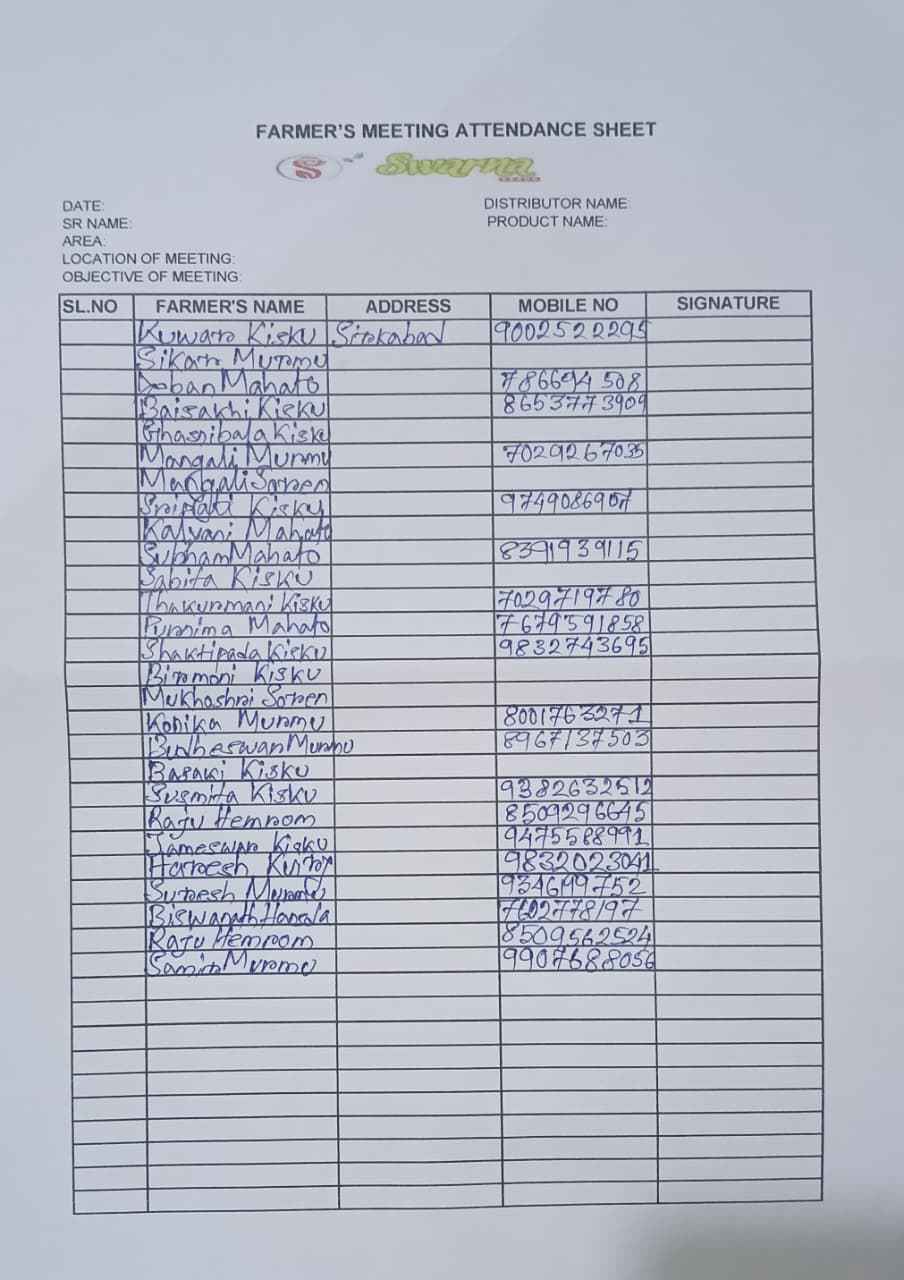 FARMER'S MEETING ATTENDANCE SHEET
S Swarna
DATE: DISTRIBUTOR NAME
SR NAME: PRODUCT NAME:
AREA:
LOCATION OF MEETING:
OBJECTIVE OF MEETING:
SL.NO FARMER'S NAME ADDRESS MOBILE NO SIGNATURE
Kuwar Kisku Sirkabad 9002522295
Sikar Murmu
Doban Mahato 786694 508
Baisakhi Kisku 8653773909
Ghasribala Kisku
Mangali Murmu 7029267035
Mangali Soren
Kisku 9749086907
Kalyani Mahato
Subham Mahato 8391939115
Sabita Kisku
Thakurmani Kisku 7029719780
Purnima Mahato 7679591858
Shaktipada Kisku 9832743695
Birmoni Kisku
Mukhoshri Soren
Konika Murmu 8001763271
Budheswar Murmu 8967137503
Basaki Kisku
Susmita Kisku 9382632512
Raju Hemrom 8509296645
Jameswar Kisku 9475588991
Haresh 9832023041
Suresh Murmu
Biswanath Hansda 7602778197
Raju Hemrom 8509562524
Samir Murmu 9907688056